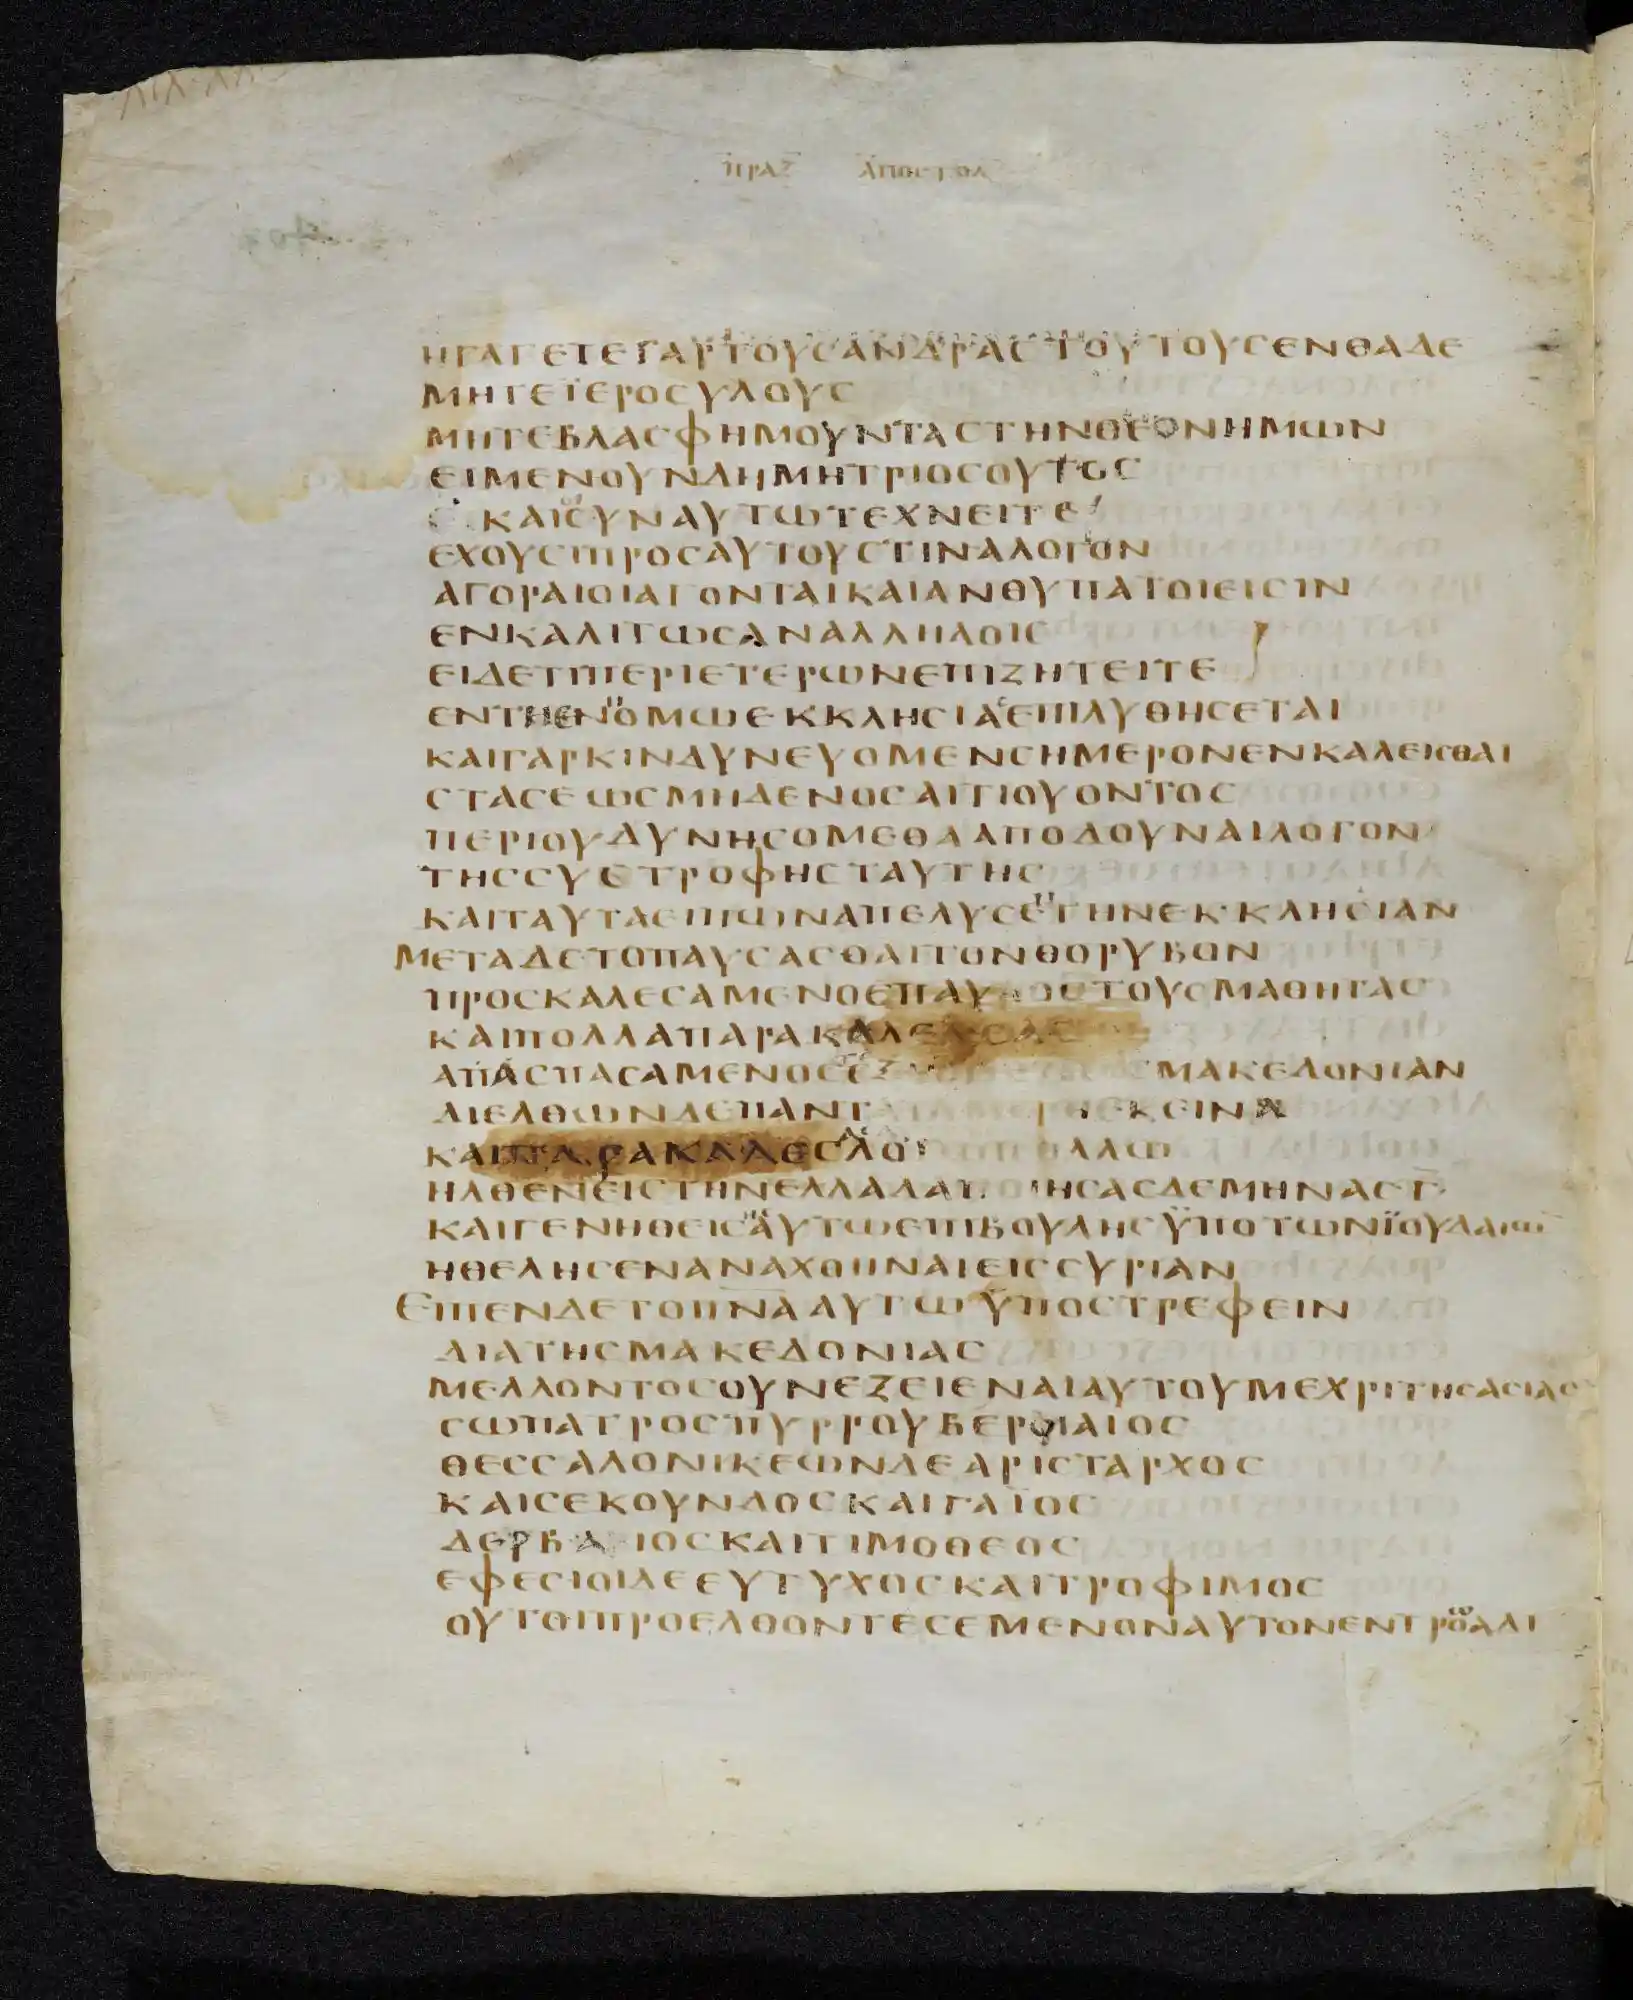 ΠΡΑΞ ΑΠΟΣΤΟΛ
ΗΓΑΓΕΤΕΓΑΡΤΟΥϹΑΝΔΡΑϹΤΟΥΤΟΥϹΕΝΘΑΔΕ
ΜΗΤΕΪΕΡΟϹΥΛΟΥϹ
ΜΗΤΕΒΛΑϹΦΗΜΟΥΝΤΑϹΤΗΝΘΕΟΝΗΜΩΝ
ΕΙΜΕΝΟΥΝΔΗΜΗΤΡΙΟϹΟΥΤΟϹ
ΚΑΙϹΥΝΑΥΤΩΤΕΧΝΕΙΤΕ
ΕΧΟΥϹΙΠΡΟϹΑΥΤΟΥϹΤΙΝΑΛΟΓΟΝ
ΑΓΟΡΑΙΟΙΑΓΟΝΤΑΙΚΑΙΑΝΘΥΠΑΤΟΙΕΙϹΙΝ
ΕΝΚΑΛΙΤΩϹΑΝΑΛΛΗΛΟΙϹ
ΕΙΔΕΤΙΠΕΡΙΕΤΕΡΩΝΕΠΙΖΗΤΕΙΤΕ
ΕΝΤΗΕΝΟΜΩΕΚΚΛΗϹΙΑΕΠΙΛΥΘΗϹΕΤΑΙ
ΚΑΙΓΑΡΚΙΝΔΥΝΕΥΟΜΕΝϹΗΜΕΡΟΝΕΝΚΑΛΕΙϹΘΑΙ
ϹΤΑϹΕΩϹΜΗΔΕΝΟϹΑΙΤΙΟΥΟΝΤΟϹ
ΠΕΡΙΟΥΔΥΝΗϹΟΜΕΘΑΑΠΟΔΟΥΝΑΙΛΟΓΟΝ
ΤΗϹϹΥϹΤΡΟΦΗϹΤΑΥΤΗϹ
ΚΑΙΤΑΥΤΑΕΙΠΩΝΑΠΕΛΥϹΕΤΗΝΕΚΚΛΗϹΙΑΝ
ΜΕΤΑΔΕΤΟΠΑΥϹΑϹΘΑΙΤΟΝΘΟΡΥΒΟΝ
ΠΡΟϹΚΑΛΕϹΑΜΕΝΟϹΠΑΥΛΟϹΤΟΥϹΜΑΘΗΤΑϹ
ΚΑΙΠΟΛΛΑΠΑΡΑΚΑΛΕΛΕϹΑϹ
ΑΠΑϹΠΑϹΑΜΕΝΟϹΕΞ ΜΑΚΕΔΟΝΙΑΝ
ΔΙΕΛΘΩΝΔΕΠΑΝΤΑ ΕΚΕΙΝΑ
ΚΑΙΠΑΡΑΚΑΛΕϹΑϹ ΠΟΛΛΩ
ΗΛΘΕΝΕΙϹΤΗΝΕΛΛΑΔΑΠΟΙΗϹΑϹΔΕΜΗΝΑϹΓ
ΚΑΙΓΕΝΗΘΕΙϹΑΥΤΩΕΠΙΒΟΥΛΗϹΫΠΟΤΩΝΪΟΥΔΑΙΩ
ΗΘΕΛΗϹΕΝΑΝΑΧΘΗΝΑΙΕΙϹϹΥΡΙΑΝ
ΕΙΠΕΝΔΕΤΟΠΝΑΑΥΤΩΫΠΟϹΤΡΕΦΕΙΝ
ΔΙΑΤΗϹΜΑΚΕΔΟΝΙΑϹ
ΜΕΛΛΟΝΤΟϹΟΥΝΕΞΕΙΕΝΑΙΑΥΤΟΥΜΕΧΡΙΤΗϹΑϹΙΑϹ
ϹΩΠΑΤΡΟϹΠΥΡΡΟΥΒΕΡΟΙΑΙΟϹ
ΘΕϹϹΑΛΟΝΙΚΕΩΝΔΕΑΡΙϹΤΑΡΧΟϹ
ΚΑΙϹΕΚΟΥΝΔΟϹΚΑΙΓΑΪΟϹ
ΔΕΡΒΑΙΟϹΚΑΙΤΙΜΟΘΕΟϹ
ΕΦΕϹΙΟΙΔΕΕΥΤΥΧΟϹΚΑΙΤΡΟΦΙΜΟϹ
ΟΥΤΟΙΠΡΟΕΛΘΟΝΤΕϹΕΜΕΝΟΝΑΥΤΟΝΕΝΤΡΩΑΔΙ